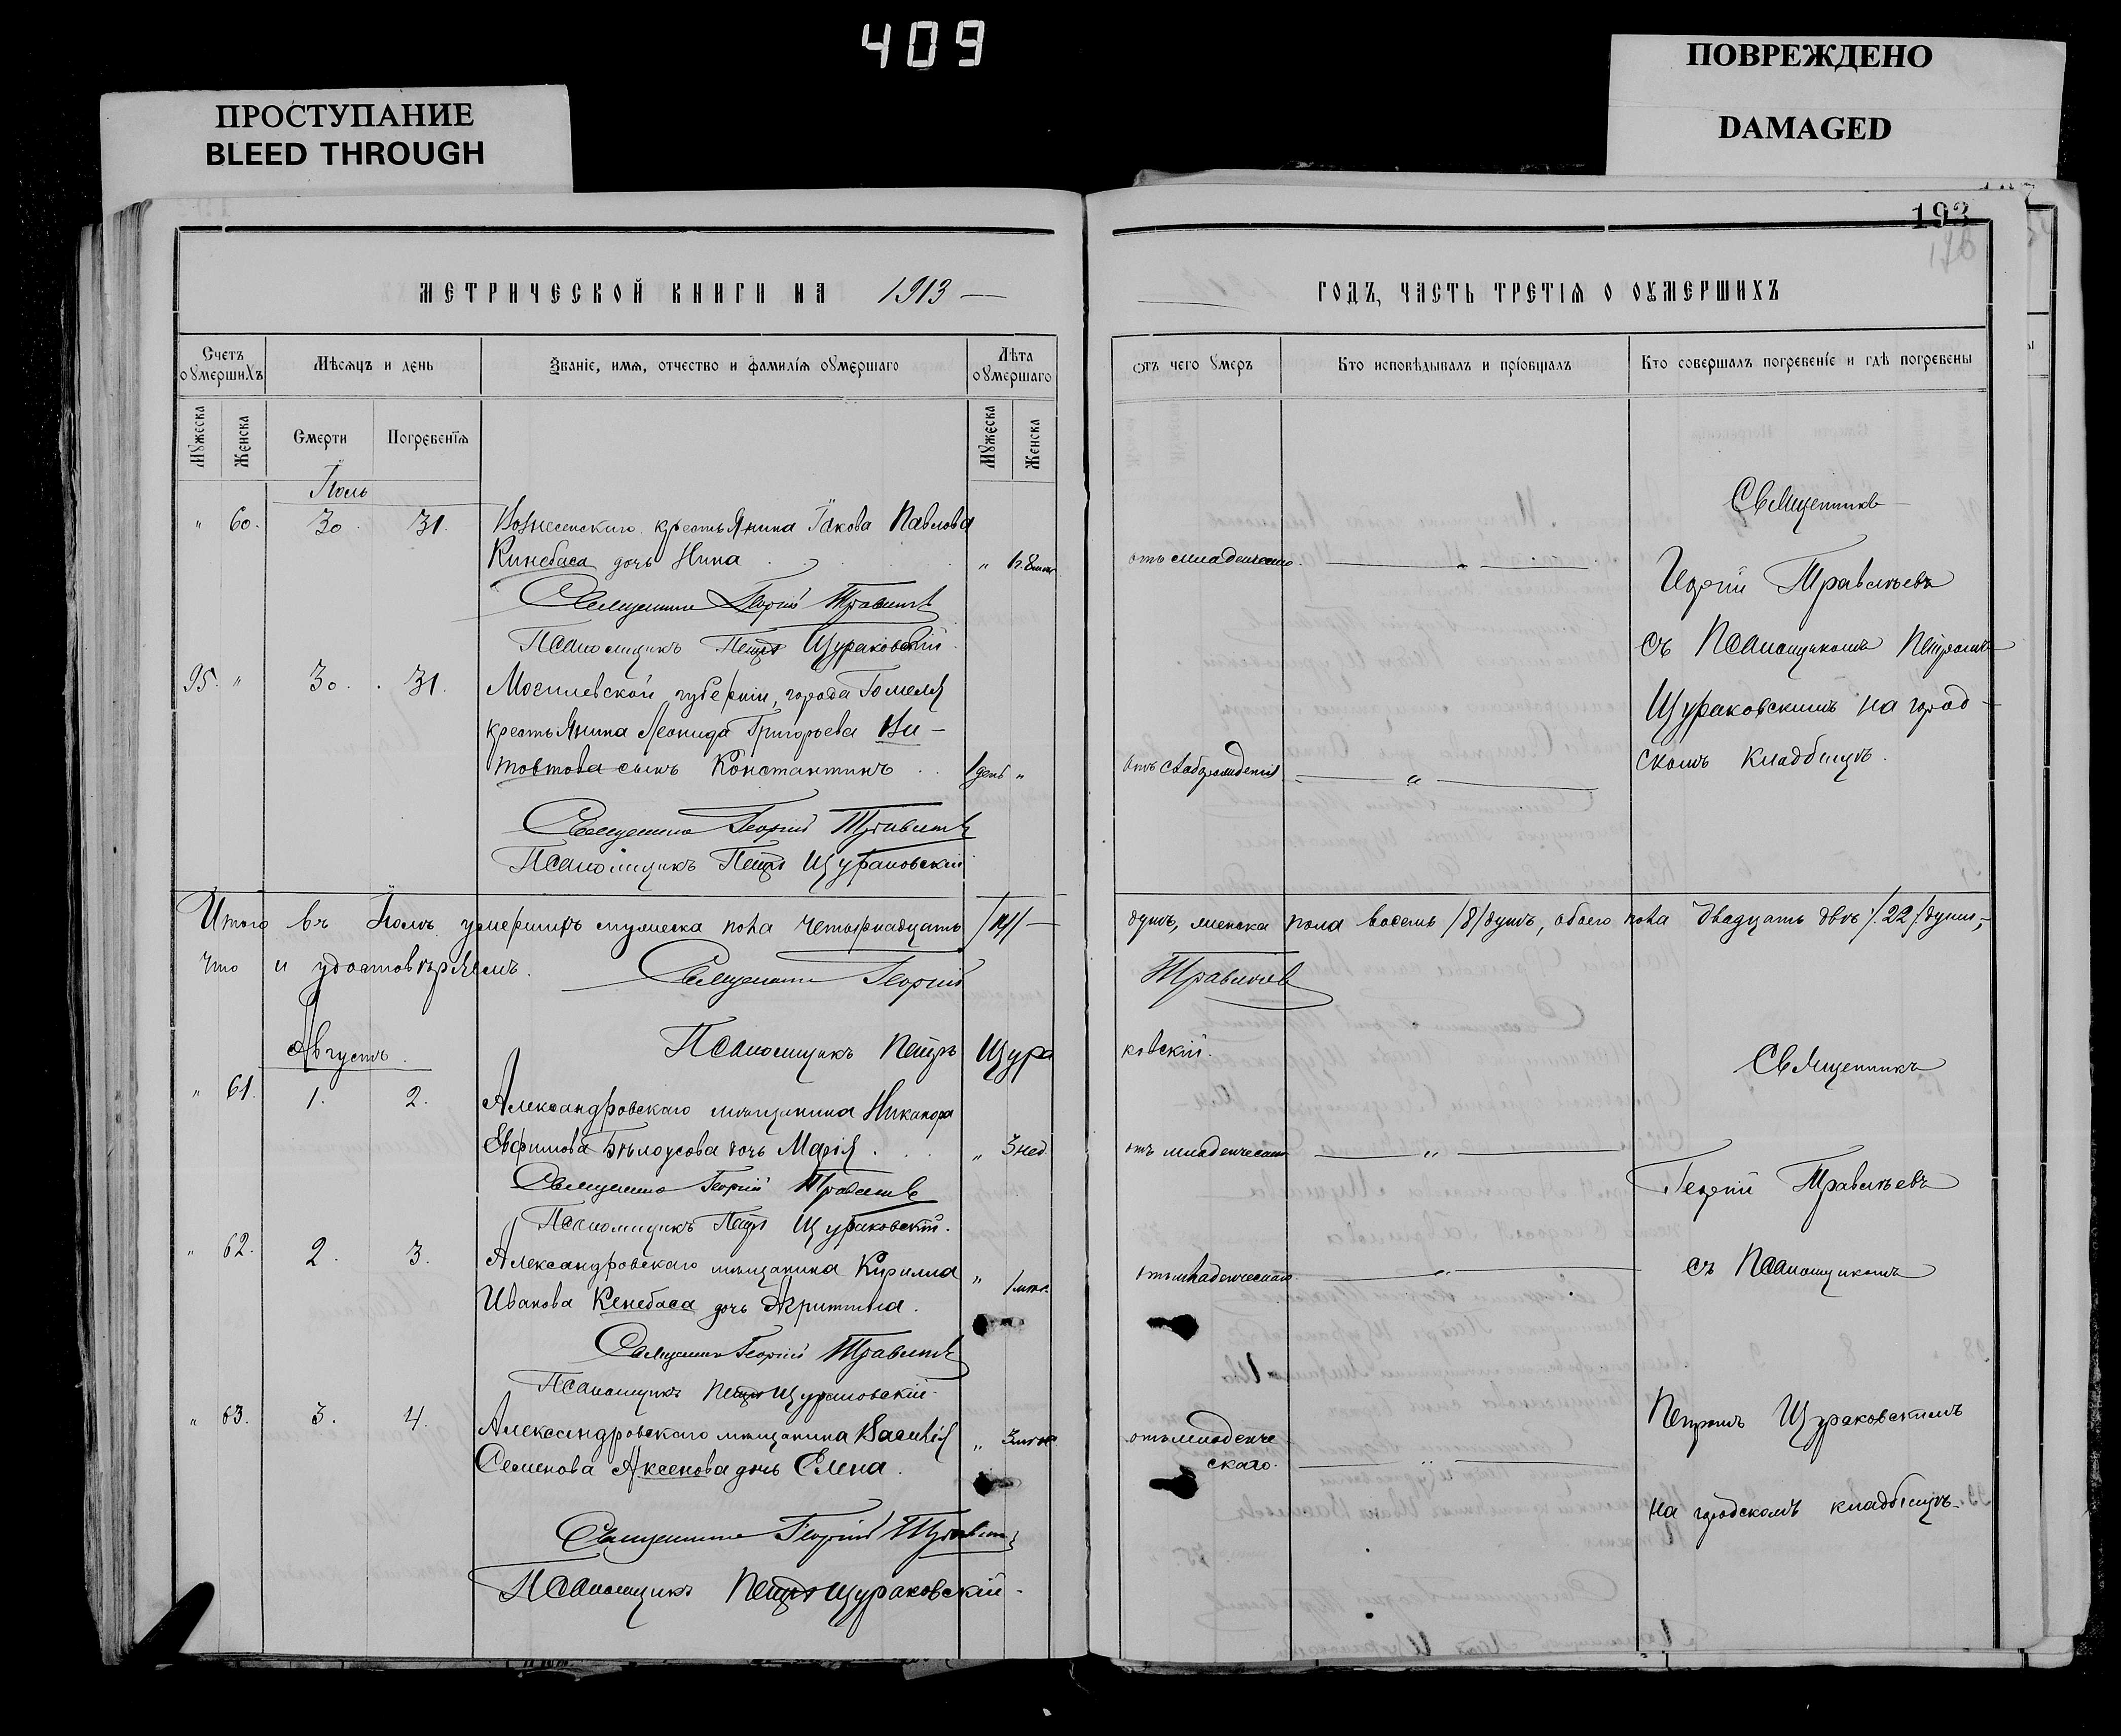 409
ПРОСТУПАНИЕ
BLEED THROUGH
ПОВРЕЖДЕНО
DAMAGED
193
МЕТРИЧЕСКОЙ КНИГИ НА 1913 —
ГОДЪ, ЧАСТЬ ТРЕТІѦ О ОУМЕРШИХЪ
Счетъ оумершихъ
Мѣсяцъ и день
Званіе, имя, отчество и фамилія оумершаго
Лѣта оумершаго
Отъ чего умеръ
Кто исповѣдывалъ и пріобщалъ
Кто совершалъ погребеніе и гдѣ погребены
Мужеска
Женска
Смерти
Погребенія
Мужеска
Женска
Іюль
" 60. 30. 31. Вознесенскаго крестьянина Іакова Павлова
Кинебаса дочь Нина "
отъ младенческаго
Священникъ Георгій Травлѣевъ
Псаломщикъ Петръ Щураковскій
95. " 30. 31. Могилевской губерніи, города Гомеля
крестьянина Леонида Григорьева Ви-
товтова сынъ Константинъ 1 день "
отъ слаборожденія
Священникъ Георгій Травлѣевъ
Псаломщикъ Петръ Щураковскій
Священникъ
Георгій Травлѣевъ
съ Псаломщикомъ Петромъ
Щураковскимъ на город-
скомъ кладбищѣ.
Итого въ Іюлѣ умершихъ мужеска пола четырнадцать /14/ — душъ, женска пола восемь /8/ душъ, обоего пола двадцать двѣ /22/ души,
что и удостовѣряемъ. Священникъ Георгій Травлѣевъ
Псаломщикъ Петръ Щураковскій.
Августъ.
" 61. 1. 2. Александровскаго мѣщанина Никанора
Евфимова Бѣлоусова дочь Марія. " 3 нед.
отъ младенческаго
Священникъ Георгій Травлѣевъ
Псаломщикъ Петръ Щураковскій.
" 62. 2. 3. Александровскаго мѣщанина Кирилла
Иванова Кенебаса дочь Акриппина. "
отъ младенческаго
Священникъ Георгій Травлѣевъ
Псаломщикъ Петръ Щураковскій.
" 63. 3. 4. Александровскаго мѣщанина Василія
Семенова Аксенова дочь Елена. "
отъ младенче
скаго.
Священникъ Георгій Травлѣевъ
Псаломщикъ Петръ Щураковскій.
Священникъ
Георгій Травлѣевъ
съ Псаломщикомъ
Петромъ Щураковскимъ
на городскомъ кладбищѣ.